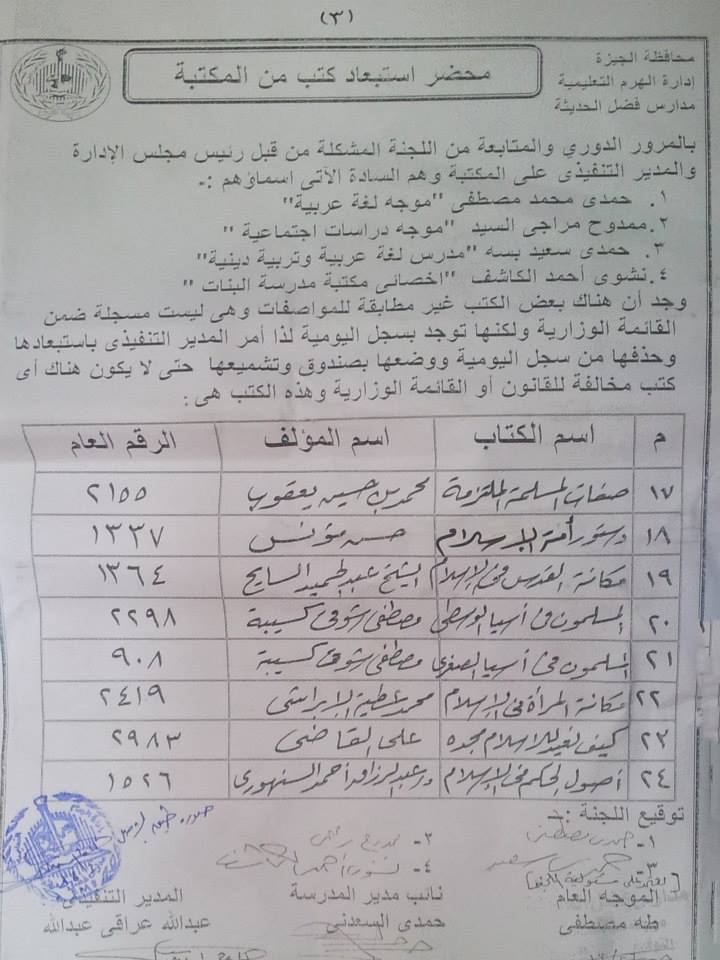 (٣)
محافظة الجيزة
إدارة الهرم التعليمية
مدارس فضل الحديثة
محضر استبعاد كتب من المكتبة
بالمرور الدوري والمتابعة من اللجنة المشكلة من قبل رئيس مجلس الإدارة
والمدير التنفيذى على المكتبة وهم السادة الآتى اسماؤهم :-
١. حمدى محمد مصطفى "موجه لغة عربية"
٢.ممدوح مراجى السيد "موجه دراسات اجتماعية "
٣. حمدى سعيد بسه "مدرس لغة عربية وتربية دينية"
٤.نشوى أحمد الكاشف "اخصائى مكتبة مدرسة البنات "
وجد أن هناك بعض الكتب غير مطابقة للمواصفات وهى ليست مسجلة ضمن
القائمة الوزارية ولكنها توجد بسجل اليومية لذا أمر المدير التنفيذى باستبعادها
وحذفها من سجل اليومية ووضعها بصندوق وتشميعها حتى لا يكون هناك أى
كتب مخالفة للقانون أو القائمة الوزارية وهذه الكتب هى :
م اسم الكتاب اسم المؤلف الرقم العام
١٧ صفات المسلمة الملتزمة محمد بن حسين يعقوب ٢١٥٥
١٨ دستور أمة الإسلام حسين مؤنس ١٣٣٧
١٩ مكانة القدس فى الإسلام الشيخ عبد الحميد السايح ١٣٦٤
٢٠ المسلمون فى آسيا الوسطى مصطفى دسوقى كسبة ٢٢٩٨
٢١ المسلمون فى آسيا الصغرى مصطفى دسوقى كسبة ٩٠٨
٢٢ مكانة المرأة فى الإسلام محمد عطية الإبراشى ٢٤١٩
٢٣ كيف نعيد للاسلام مجده على القاضى ٢٩٨٣
٢٤ أصول الحكم فى الإسلام د/ عبد الرزاق أحمد السنهورى ١٥٢٦
توقيع اللجنة :-
١- حمدى مصطفى ٢- ممدوح
٣- حمدى سعيد ٤- نشوى أحمد الكاشف
الموجه العام نائب مدير المدرسة المدير التنفيذى
طه مصطفى حمدى السعدنى عبدالله عراقى عبدالله